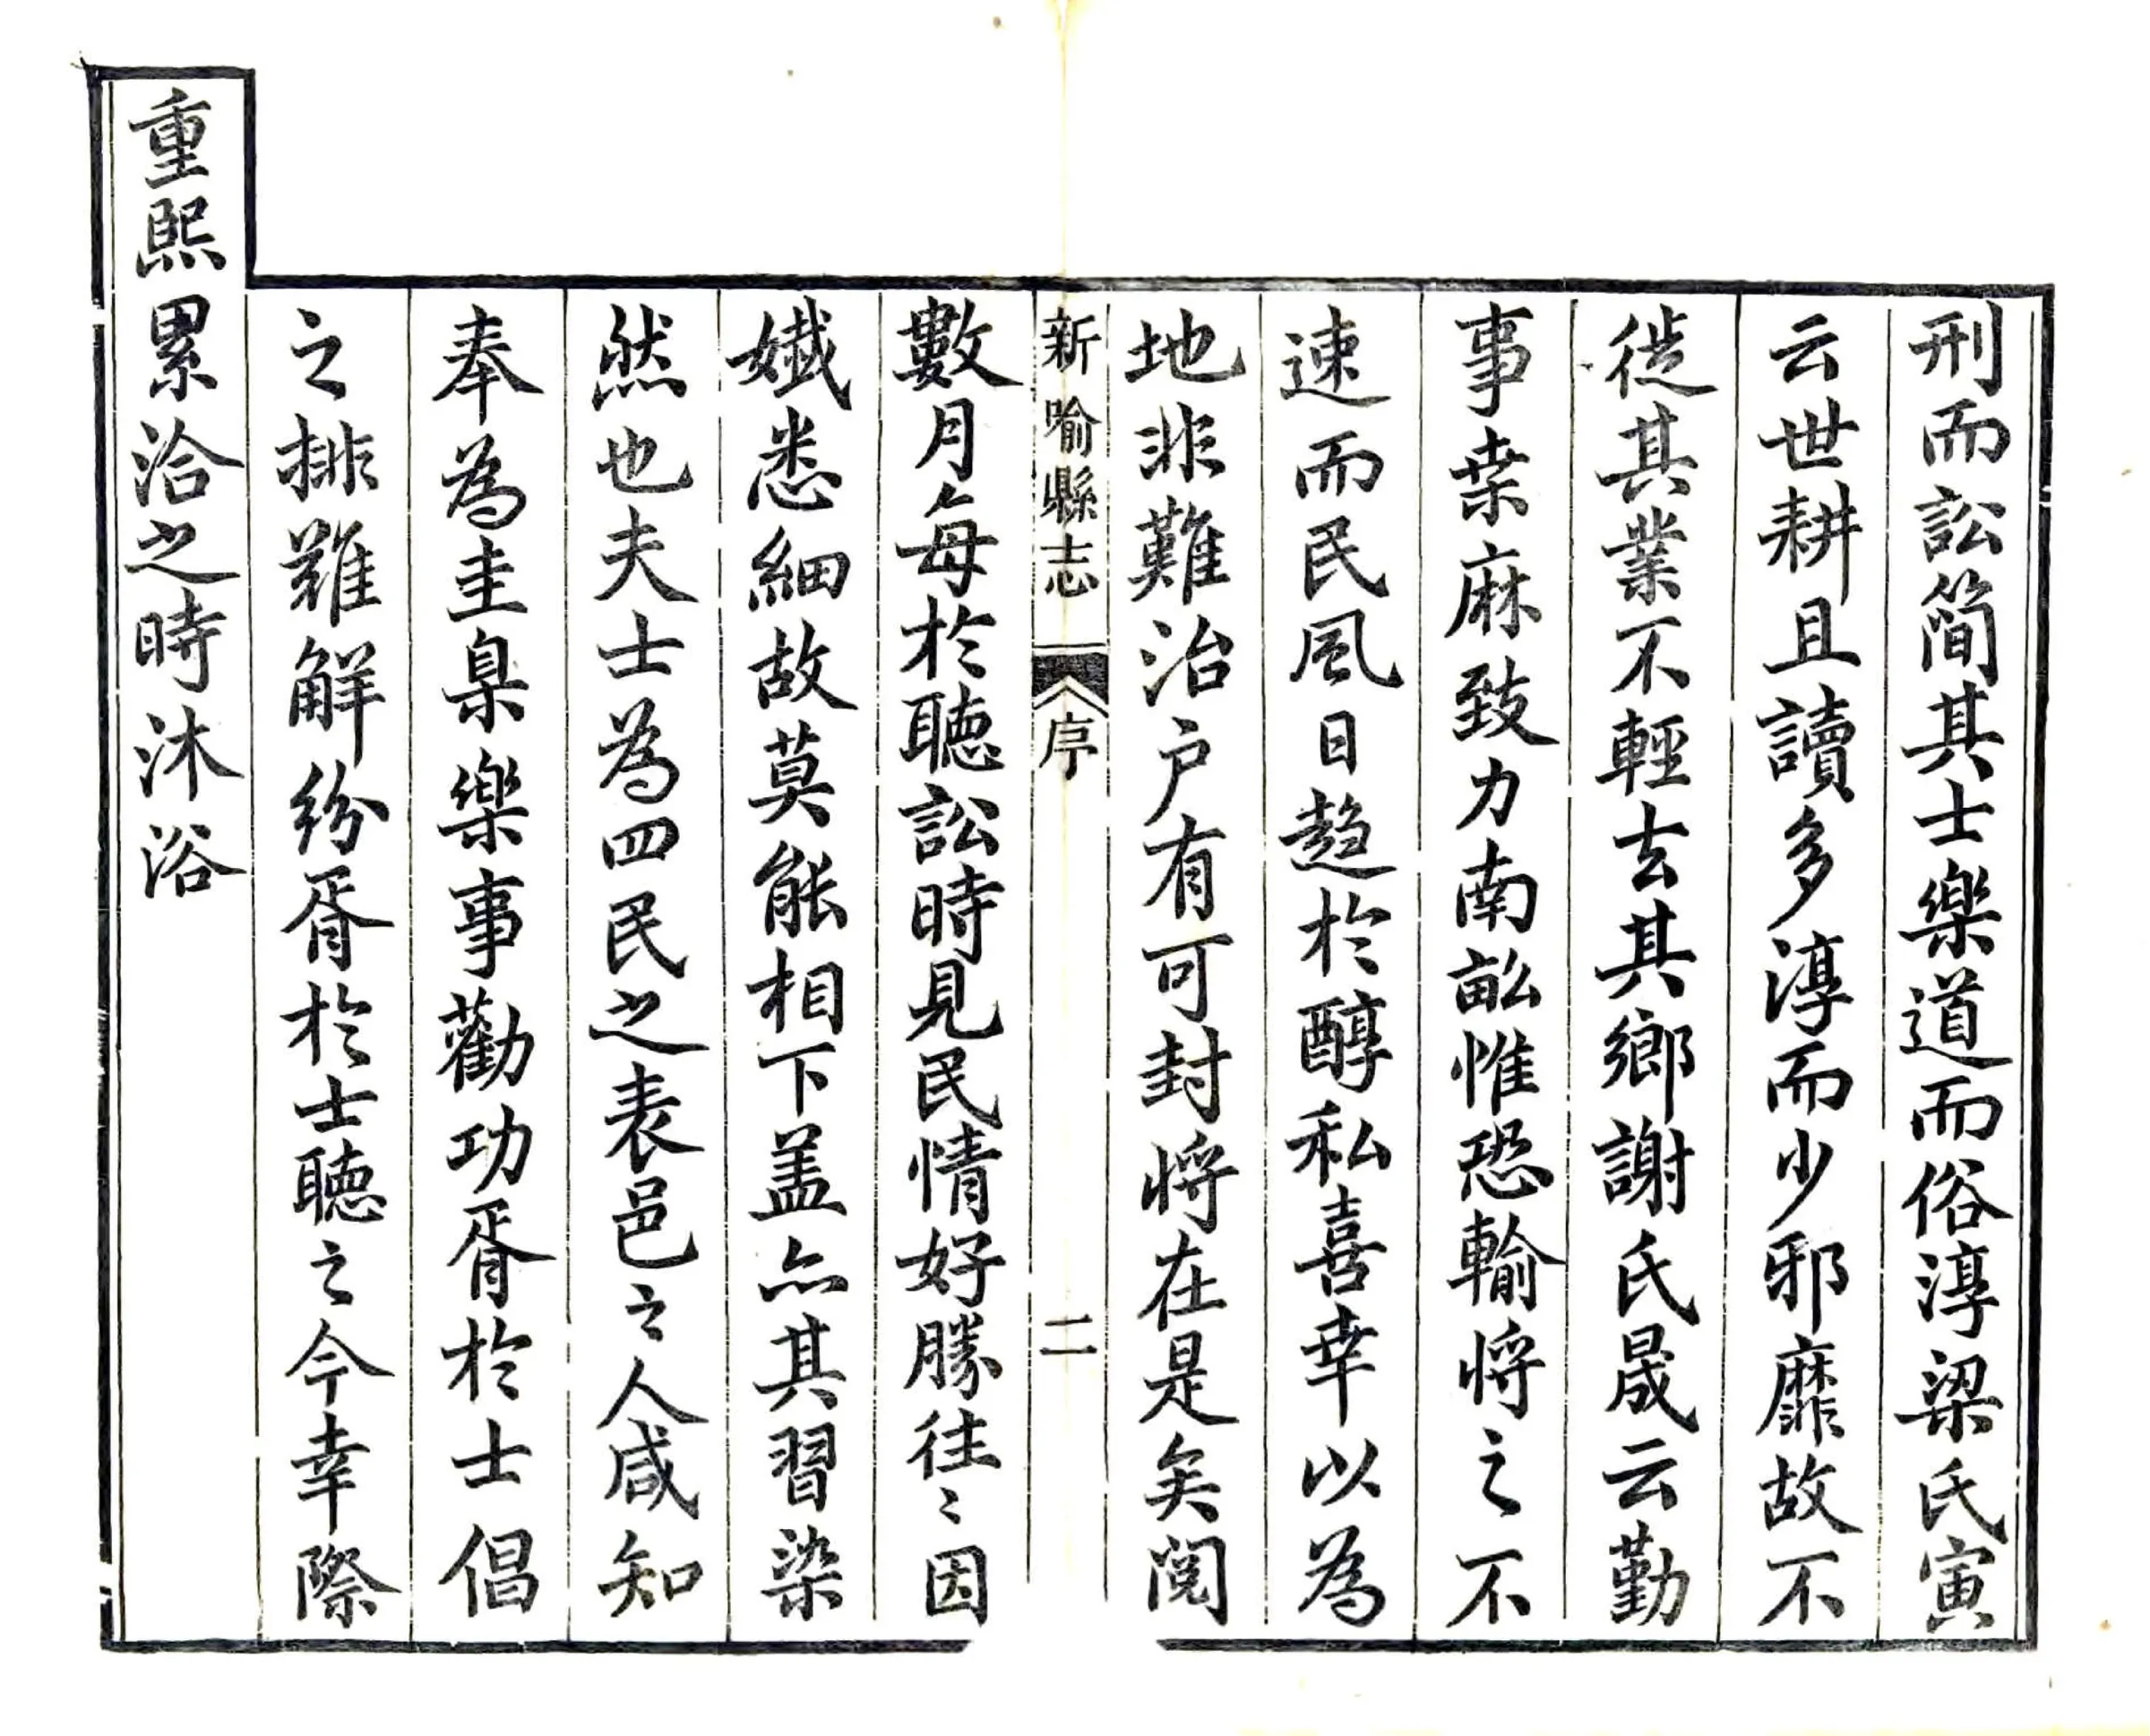 刑而訟簡其士樂道而俗淳梁氏寅
云世耕且讀多淳而少邪靡故不
徙其業不輕去其鄉謝氏晟云勤
事桒麻致力南畝惟恐輸将之不
速而民風日趋於醇私喜幸以為
地非難治户有可封将在是矣閲
新喻縣志
序
二
數月每於聽訟時見民情好勝往〻因
孅悉細故莫能相下盖亦其習染
然也夫士為四民之表邑之人咸知
奉為圭臬樂事勸功胥於士倡
之排難解紛胥於士聽之今幸際
重熙累洽之時沐浴